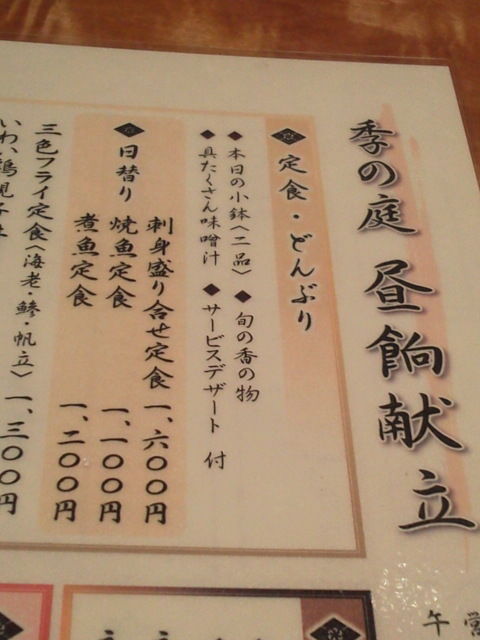 季の庭 昼餉献立
定食・どんぶり
◆本日の小鉢〈二品〉 ◆旬の香の物
◆具たくさん味噌汁 ◆サービスデザート 付
日替り 刺身盛り合せ定食 一、六〇〇円
焼魚定食 一、一〇〇円
煮魚定食 一、二〇〇円
三色フライ定食〈海老・鯵・帆立〉 一、三〇〇円
午 営